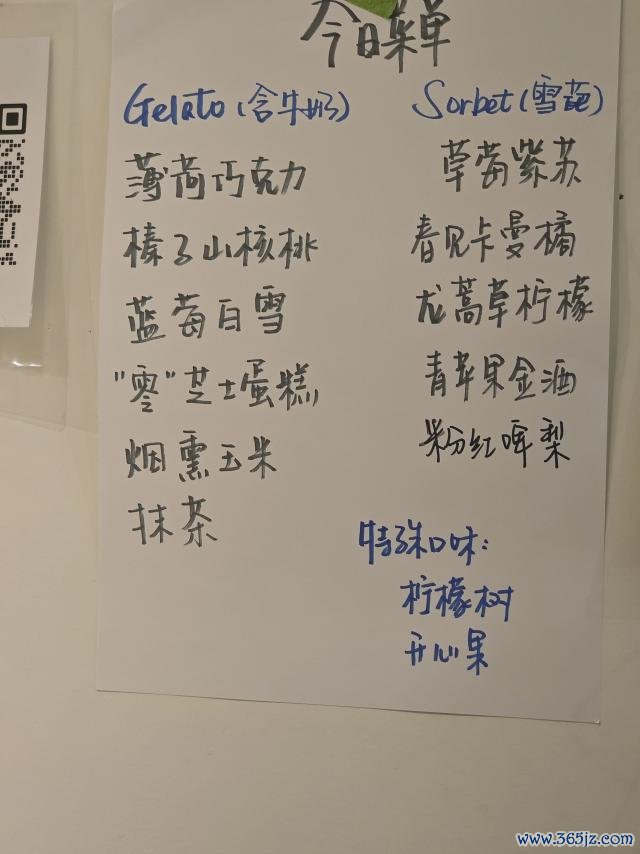 今日菜单
Gelato(含牛奶)
薄荷巧克力
榛子山核桃
蓝莓白雪
"零"芝士蛋糕
烟熏玉米
抹茶
Sorbet(雪葩)
草莓紫苏
春见卡曼橘
龙蒿草柠檬
青苹果金酒
粉红啤梨
特殊口味:
柠檬树
开心果
www.365jz.com